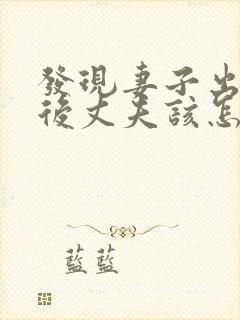 發現妻子出
後丈夫該怎
藍藍